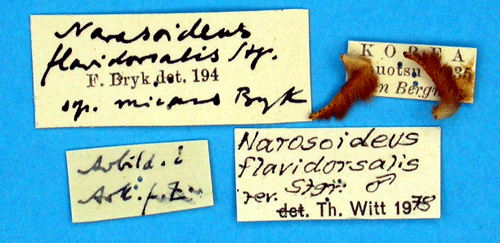 Narosoideus
flavidorsalis Stg.
F. Bryk det. 194
sp. micans Bryk
KOREA
35
Arbild. i
Ark. f. Z.
Narosoideus
flavidorsalis
rev. Stgr. ♂
det. Th. Witt 1975